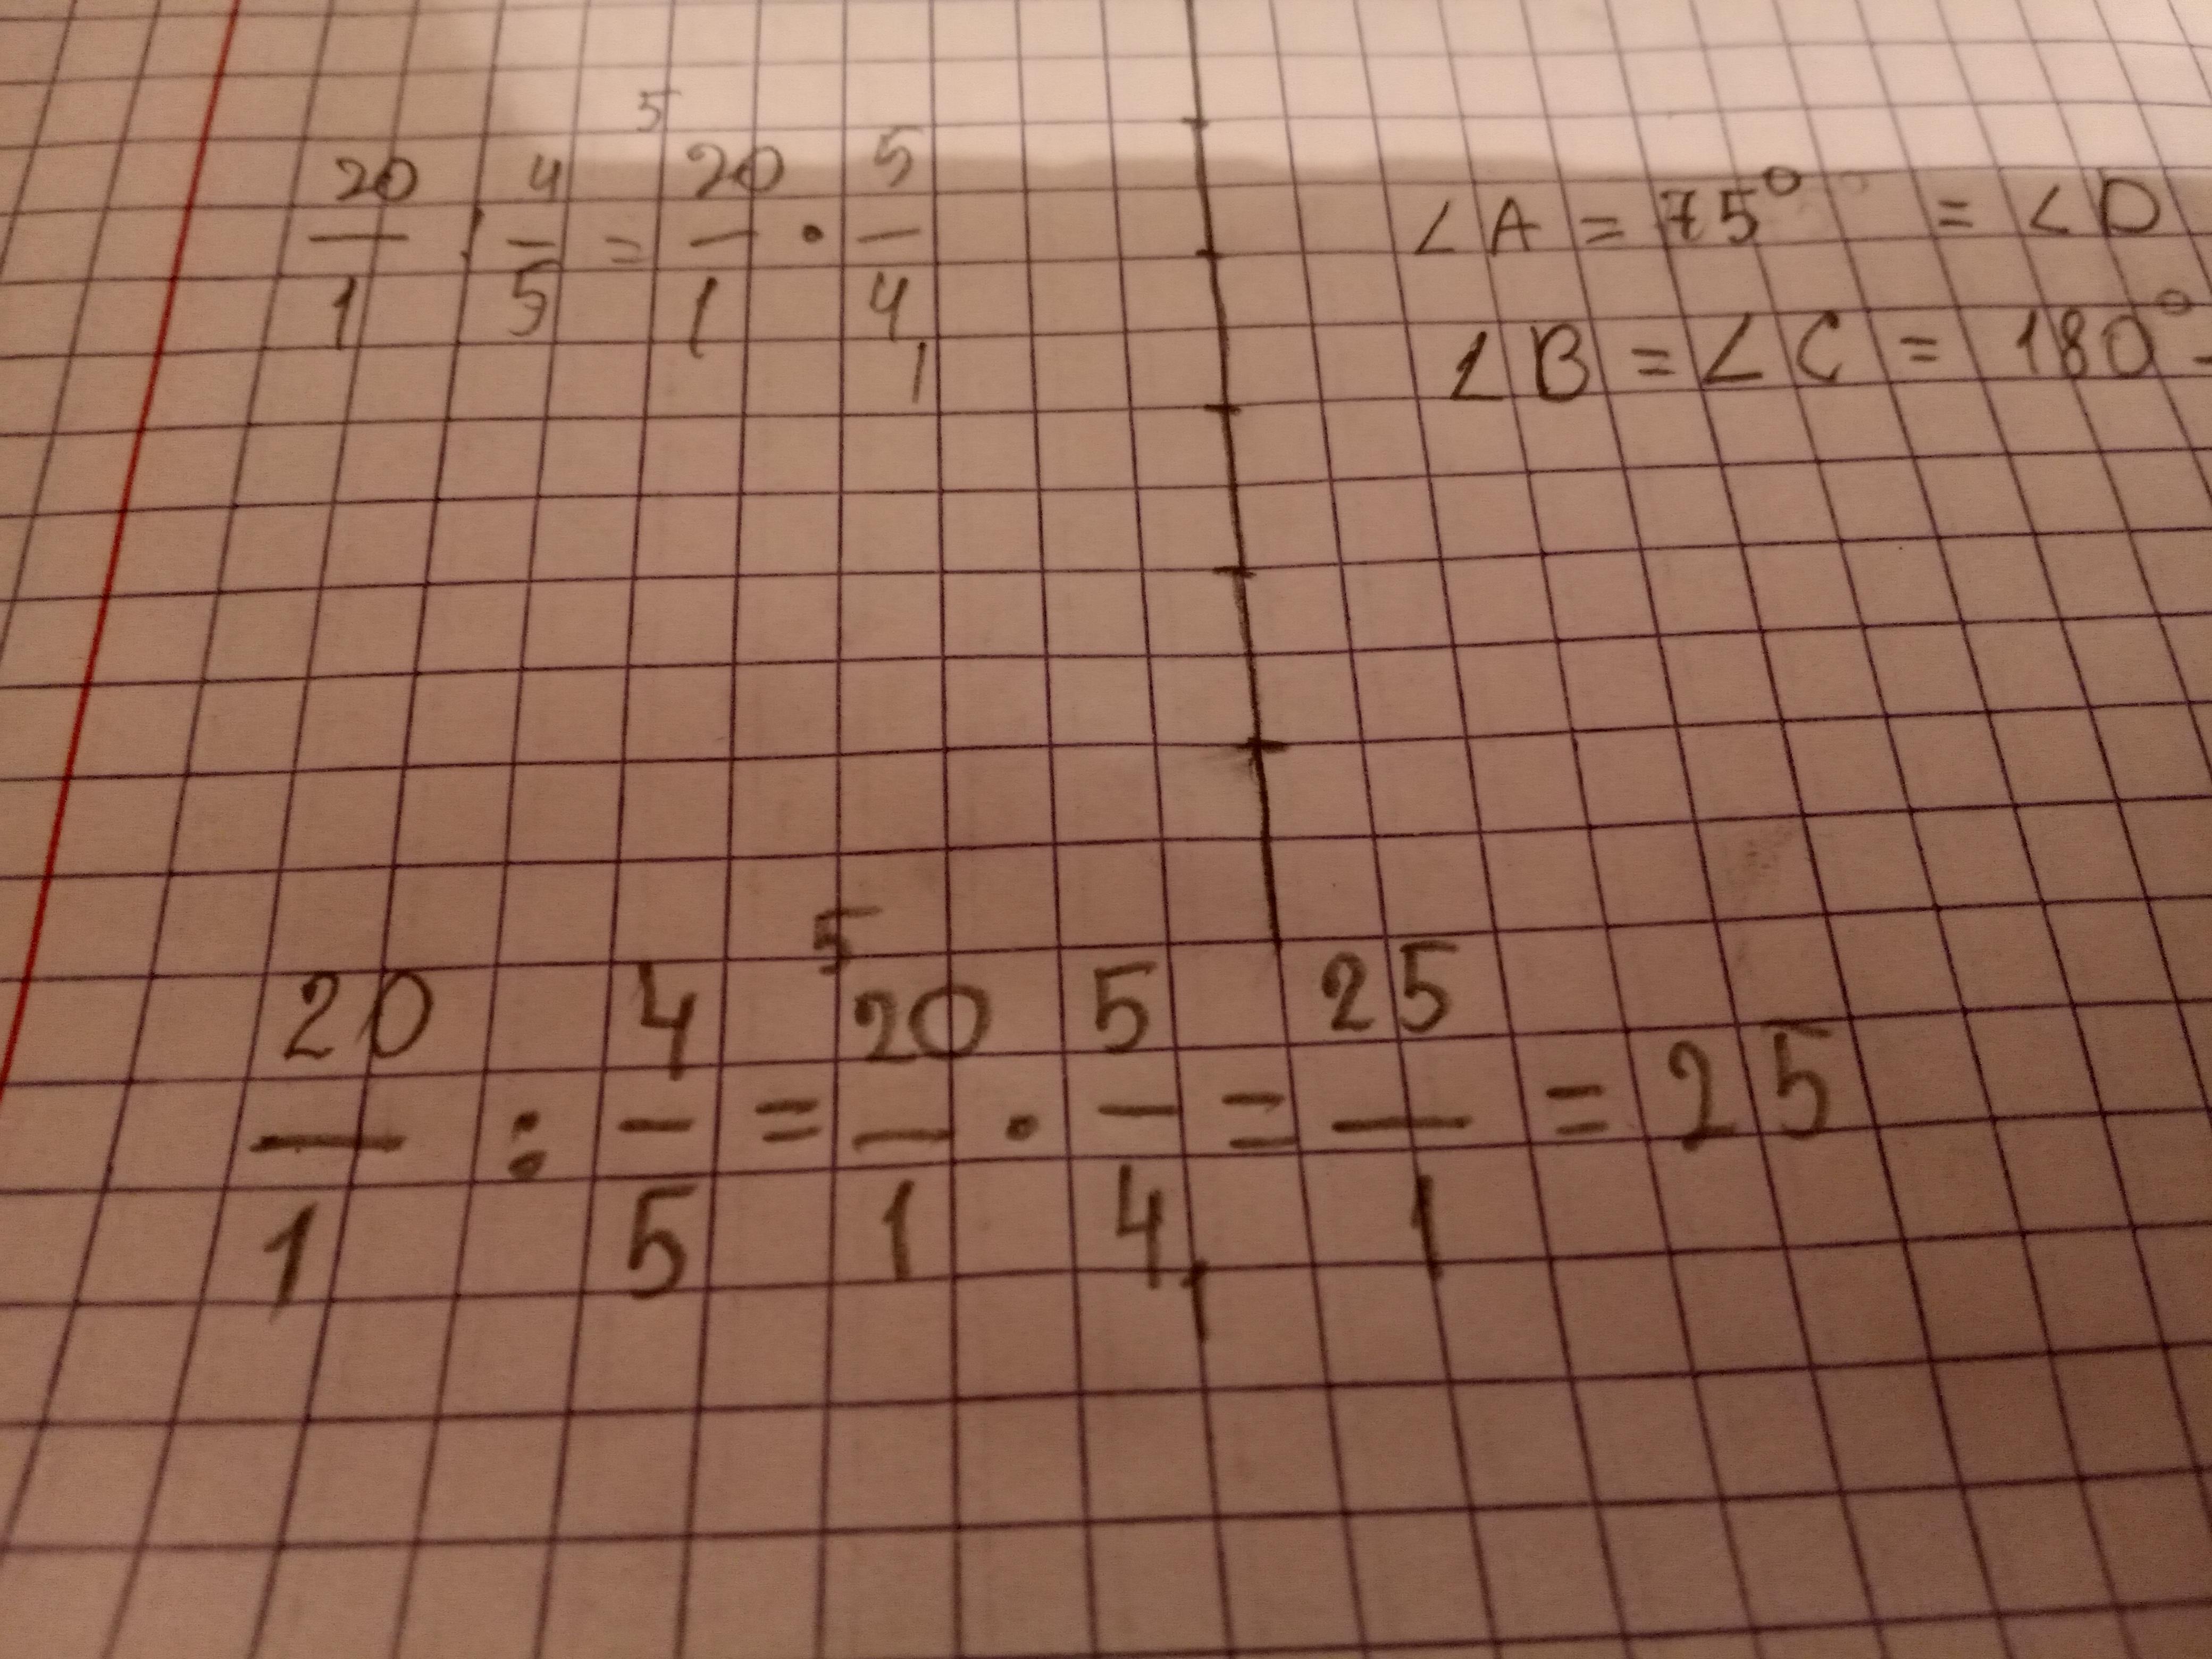 20/1 : 4/5 = 5 20/1 · 5/4 1
∠A = 75° = ∠D
∠B = ∠C = 180° -
20/1 : 4/5 = 5 20/1 · 5/4 1 = 25/1 = 25